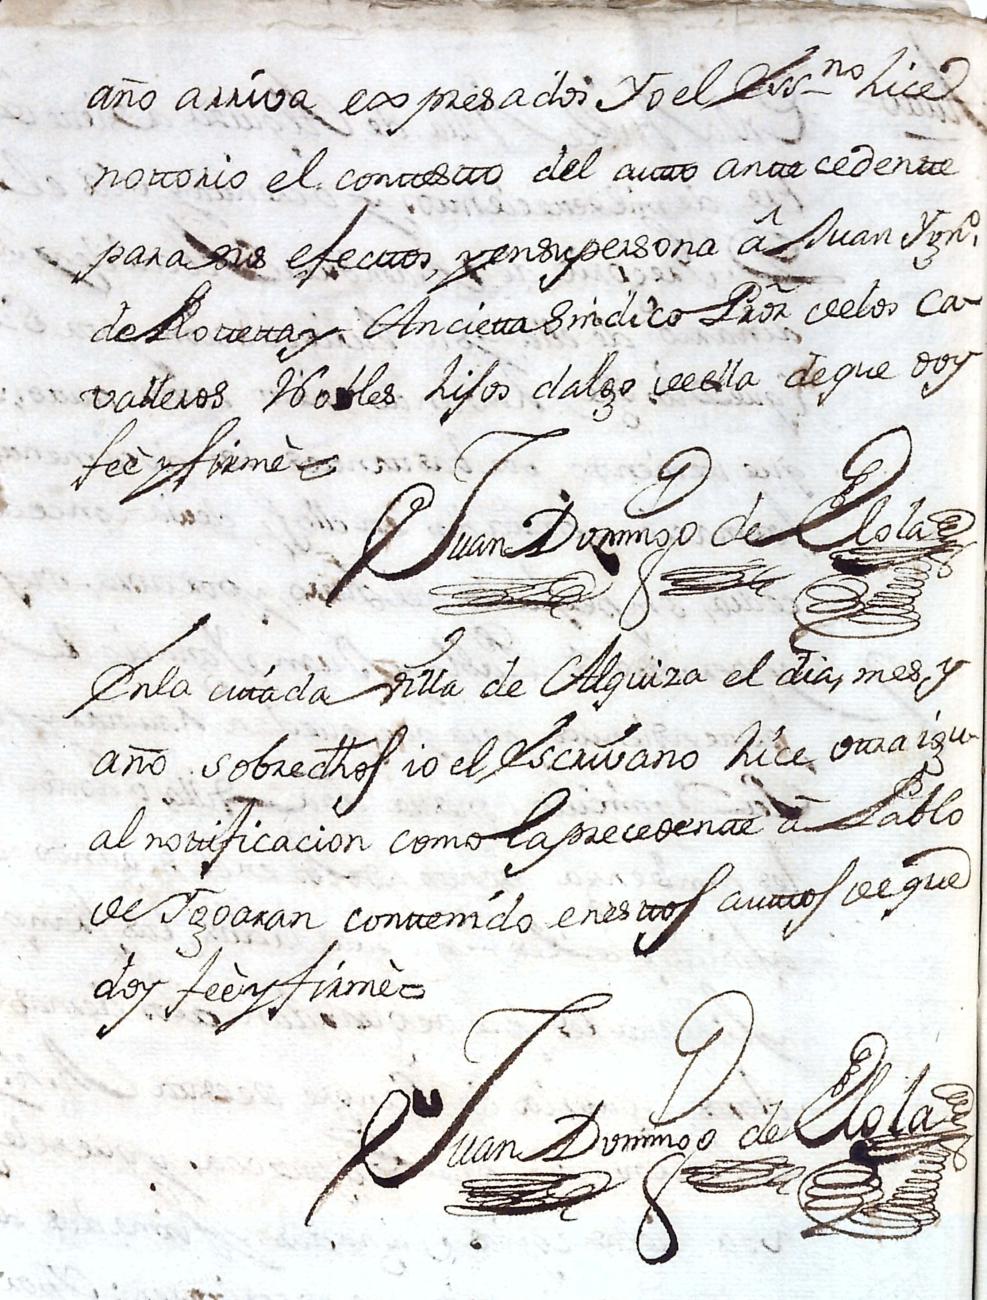 año arriva expresados Yo el Essno hice
nottorio el conttestto del autto antecedentte
para sus efecttos, y en su persona â Juan Ygnº.
de Rotetta y Ancietta Sindico Pror de los Ca-
valleros Nobles hijos dalgo de ella de que doy
feè y firmè
Juan Domingo de Elola
En la cittada villa de Alquiza el dia, mes, y
año sobredhos io el Escrivano hice otra igu-
al nottificacion como la precedentte â Pablo
de Ygoaran conttenido en esttos auttos de que
doy feè y firmè
Juan Domingo de Elola